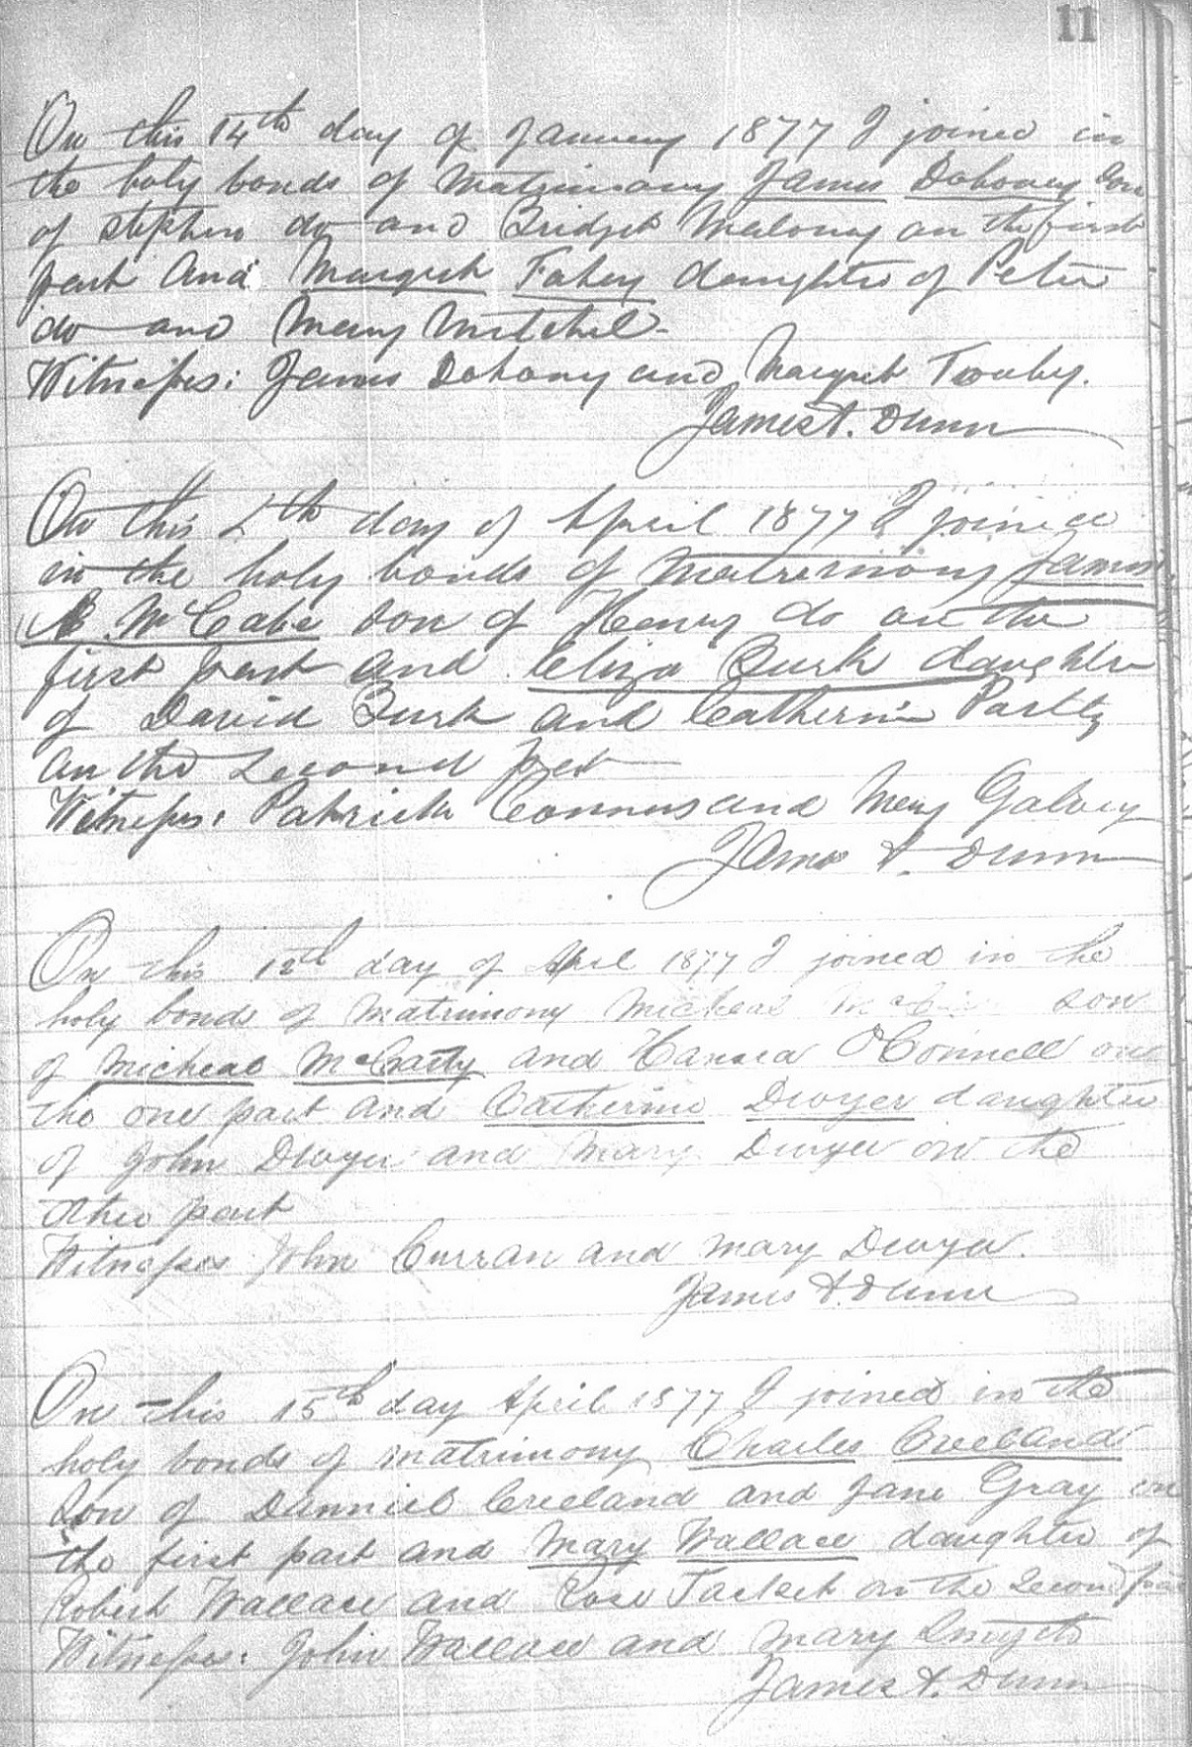 11
On this 14th day of January 1877 I joined in
the holy bonds of Matrimony James Dohoney son
of Stephen do and Bridget Malony on the first
part And Margret Fahey daughter of Peter
do and Mary Mitchel
Witnesses: James Dohony and Margret
James A. Dunn
On this day of April 1877 I joined
in the holy bonds of Matrimony James
McCabe son of Henry do on the
first part and Eliza Burk daughter
of David Burk and Catherin
on the Second part
Witness: Patrick Connors and Mary Galvey
James A. Dunn
On this 12th day of April 1877 I joined in the
holy bonds of Matrimony Micheal son
of Micheal McCarty and O'Connell on
the one part and Catherine Dwyer daughter
of John Dwyer and Mary Dwyer on the
other part
Witnesses John Curran and Mary Dwyer.
James A. Dunn
On this 15th day April 1877 I joined in the
holy bonds of matrimony Charles Creeland
Son of Danniel Creeland and Jane Gray on
the first part and Mary Wallace daughter of
Robert Wallace and Rose on the Second part
Witnesses: John Wallace and Mary Smyth
James A. Dunn